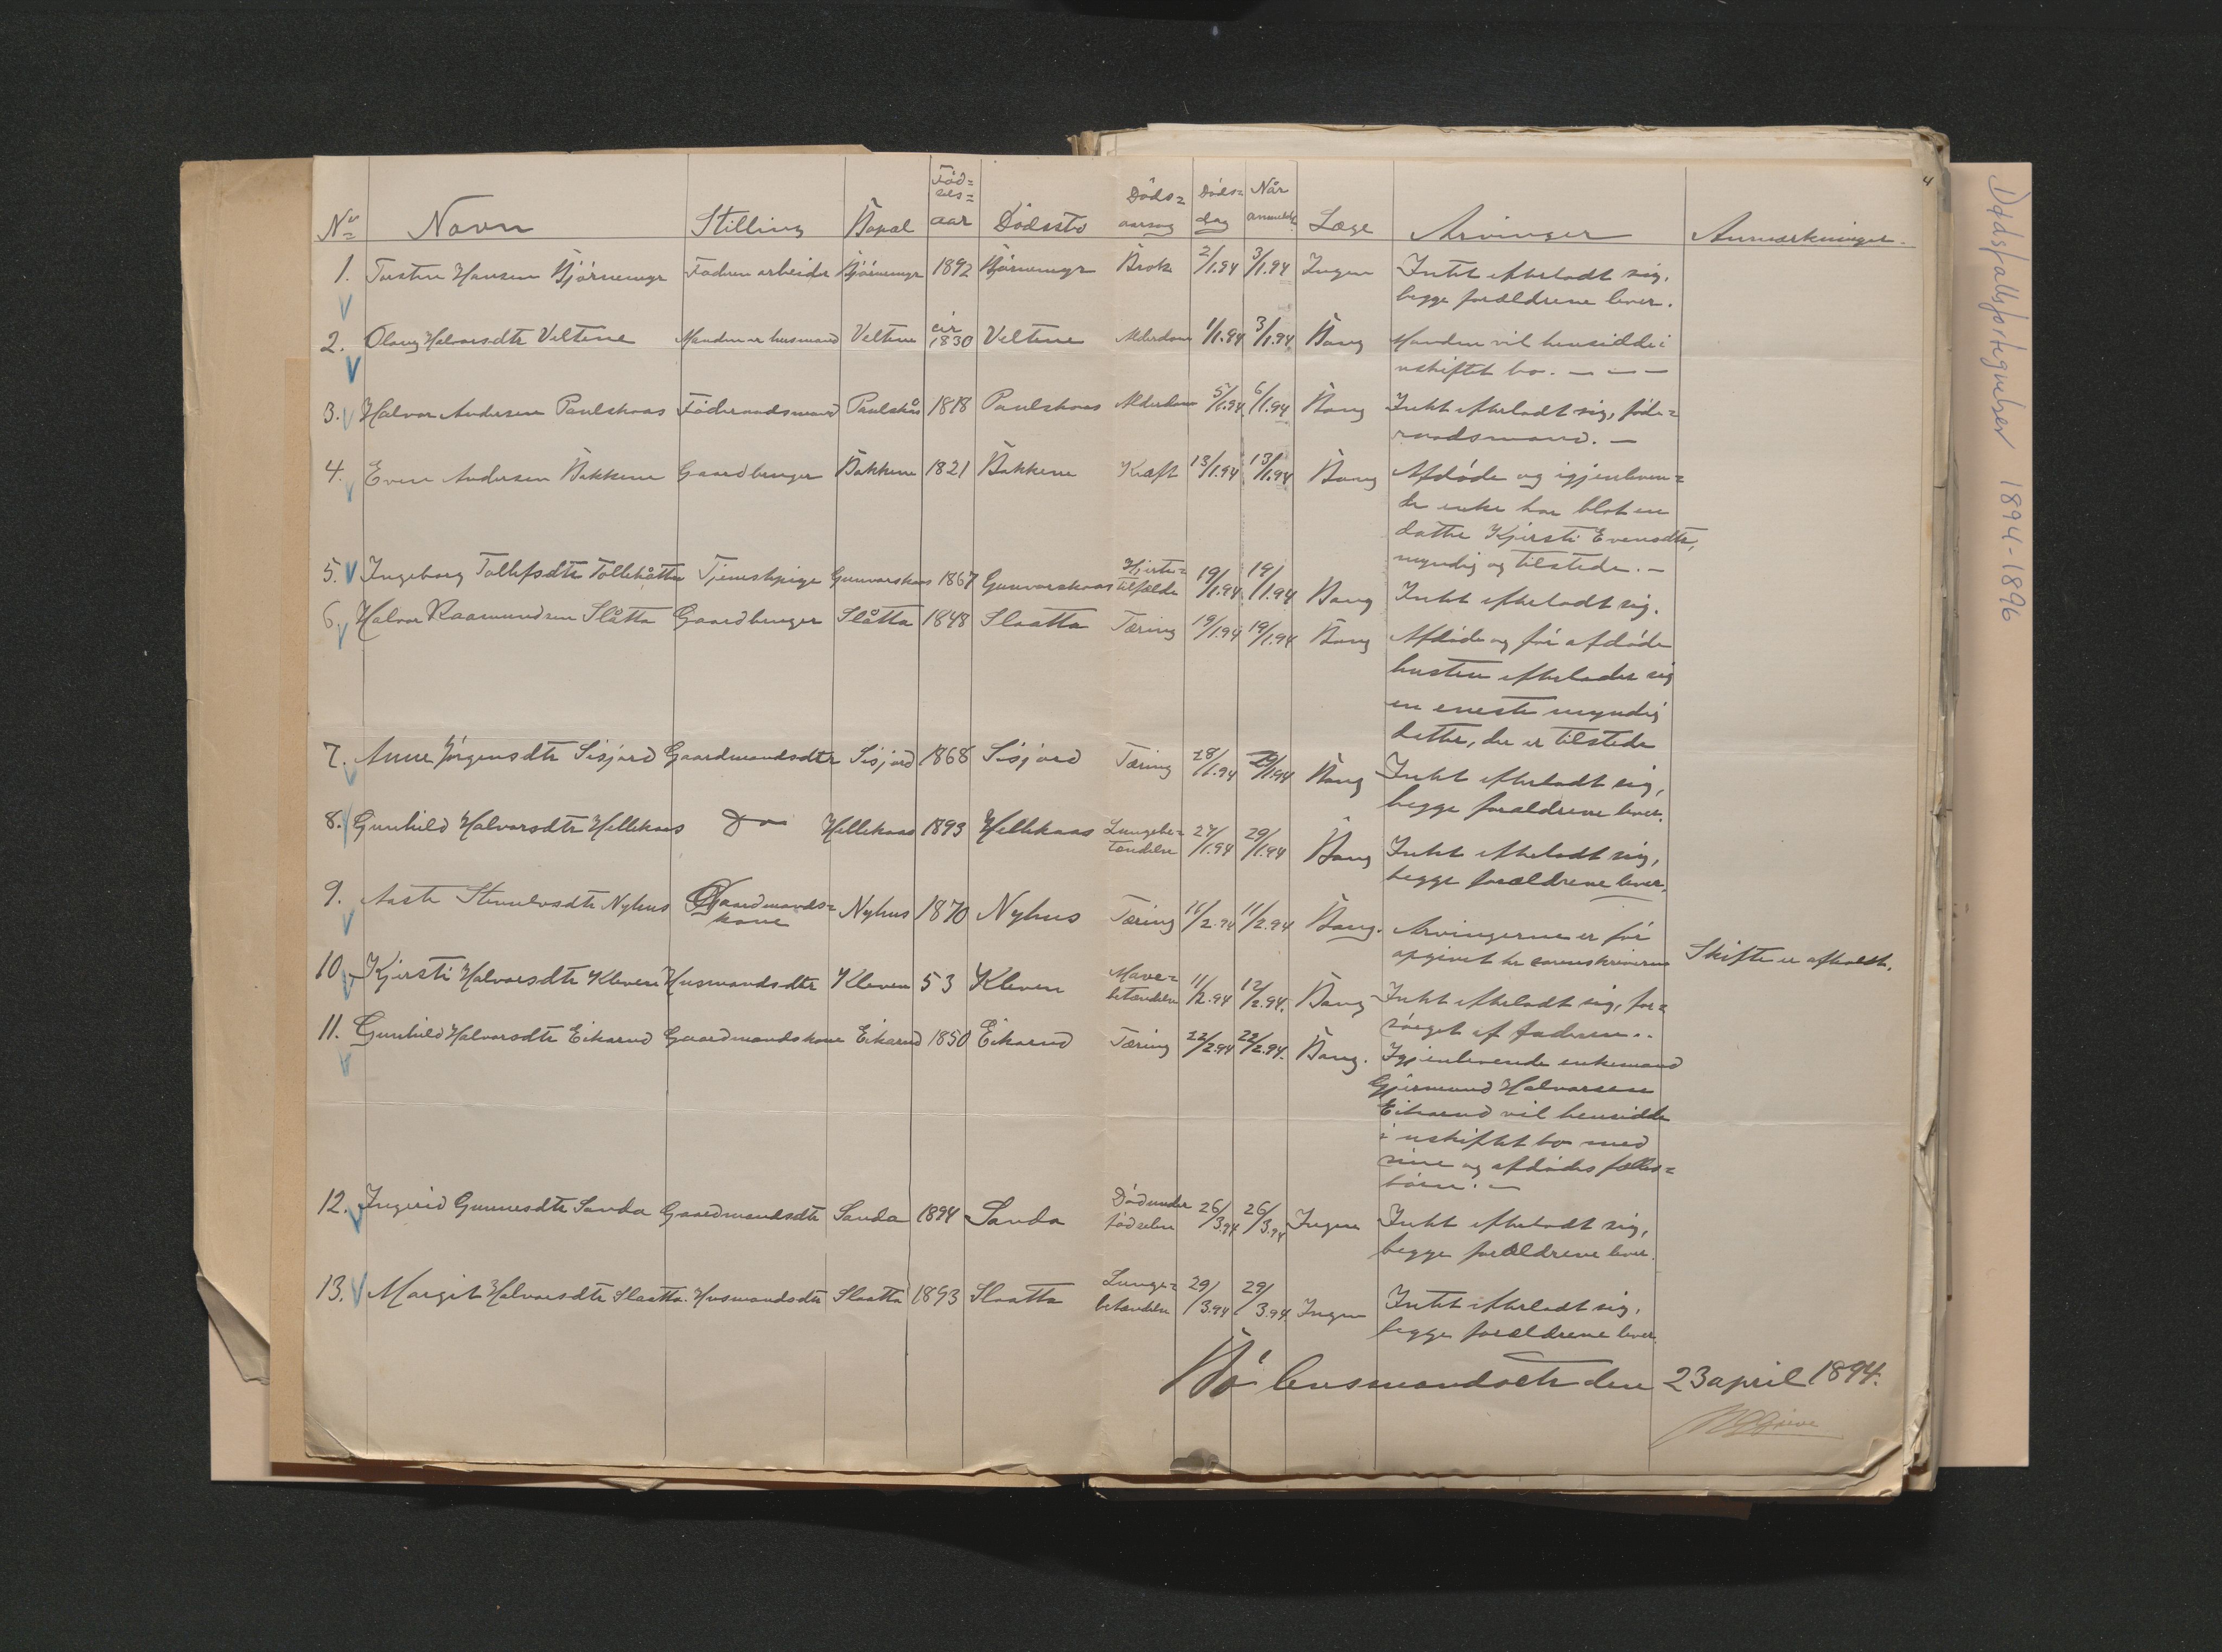 Dødsfallsfortegnelser 1894-1896
4
No Navn Stilling Bopæl Fød=els=aar Dødssted Døds=aarsag Døds=dag Når anmeldt Læge Arvinger Anmærkninger.
1. Torsten Hansen Bjørnemyr Faderen arbeider Bjørnemyr 1892 Bjørnemyr Brok 2/1.94 3/1.94 Ingen Intet efterladt sig,
begge forældrene lever.
2. Olaug Halvorsdtr Veltene Manden er husmand Veltene cir 1830 Veltene Alderdom 1/1.94 3/1.94 Bang Manden vil hensidde i
uskiftet bo. — — —
3. Halvor Andersen Paulskaas Føderaadsmand Paulskås 1818 Paulskaas Alderdom 5/1.94 6/1.94 Bang Intet efterladt sig, føde=
raadsmand. —
4. Even Andersen Bakkene Gaardbruger Bakkene 1821 Bakkene Kræft 13/1.94 13/1.94 Bang Afdøde og igjenleven=
de enke har blot en
datter Kjersti Evensdtr,
myndig og tilstede. —
5. Ingeborg Tollefsdtr Tollehåtta Tjenestpige Gunvorskaas 1867 Gunvorskaas Hjerte=tilfælde 19/1.94 19/1.94 Bang Intet efterladt sig.
6. Halvor Raamundsen Slåtta Gaardbruger Slåtta 1848 Slaatta Tæring 19/1.94 19/1.94 Bang Afdøde og før afdøde
hustru efterlader sig
en eneste myndig
datter, der er tilstede
7. Anne Jørgensdtr Sisjord Gaardmandsdtr Sisjord 1868 Sisjord Tæring 28/1.94 29/1.94 Bang Intet efterladt sig,
begge forældrene lever.
8. Gunhild Halvorsdtr Hellekaas Do — Hellekaas 1893 Hellekaas Lungebe=tændelse 27/1.94 29/1.94 Bang Intet efterladt sig,
begge forældrene lever.
9. Aaste Stenulvsdtr Nyhus Gaardmands=kone Nyhus 1870 Nyhus Tæring 11/2.94 11/2.94 Bang. Arvingerne er før
opgivet hr sorenskriveren Skifte er afholdt.
10. Kjersti Halvorsdtr Kleven Husmandsdtr Kleven 53 Kleven Mave=betændelse 11/2.94 12/2.94. Bang Intet efterladt sig, for=
sørget af faderen..
11. Gunhild Halvorsdtr Eikarud Gaardmandskone Eikarud 1850 Eikarud Tæring 22/2.94 22/2.94. Bang. Igjenlevende enkemand
Gjermund Halvorsen
Eikarud vil hensidde
i uskiftet bo med
sine og afdødes fælles=
børn. —
12. Ingerid Gunnesdtr Sanda Gaardmandsdtr Sanda 1894 Sanda Død under fødselen 26/3.94 26/3.94 Ingen Intet efterladt sig,
begge forældrene lever.
13. Margit Halvorsdtr Slaatta. Husmandsdtr Slaatta 1893 Slaatta Lunge=betændelse 29/3.94 29/3.94 Ingen Intet efterladt sig,
begge forældrene lever.
Bø lensmandsetr den 23 april 1894.